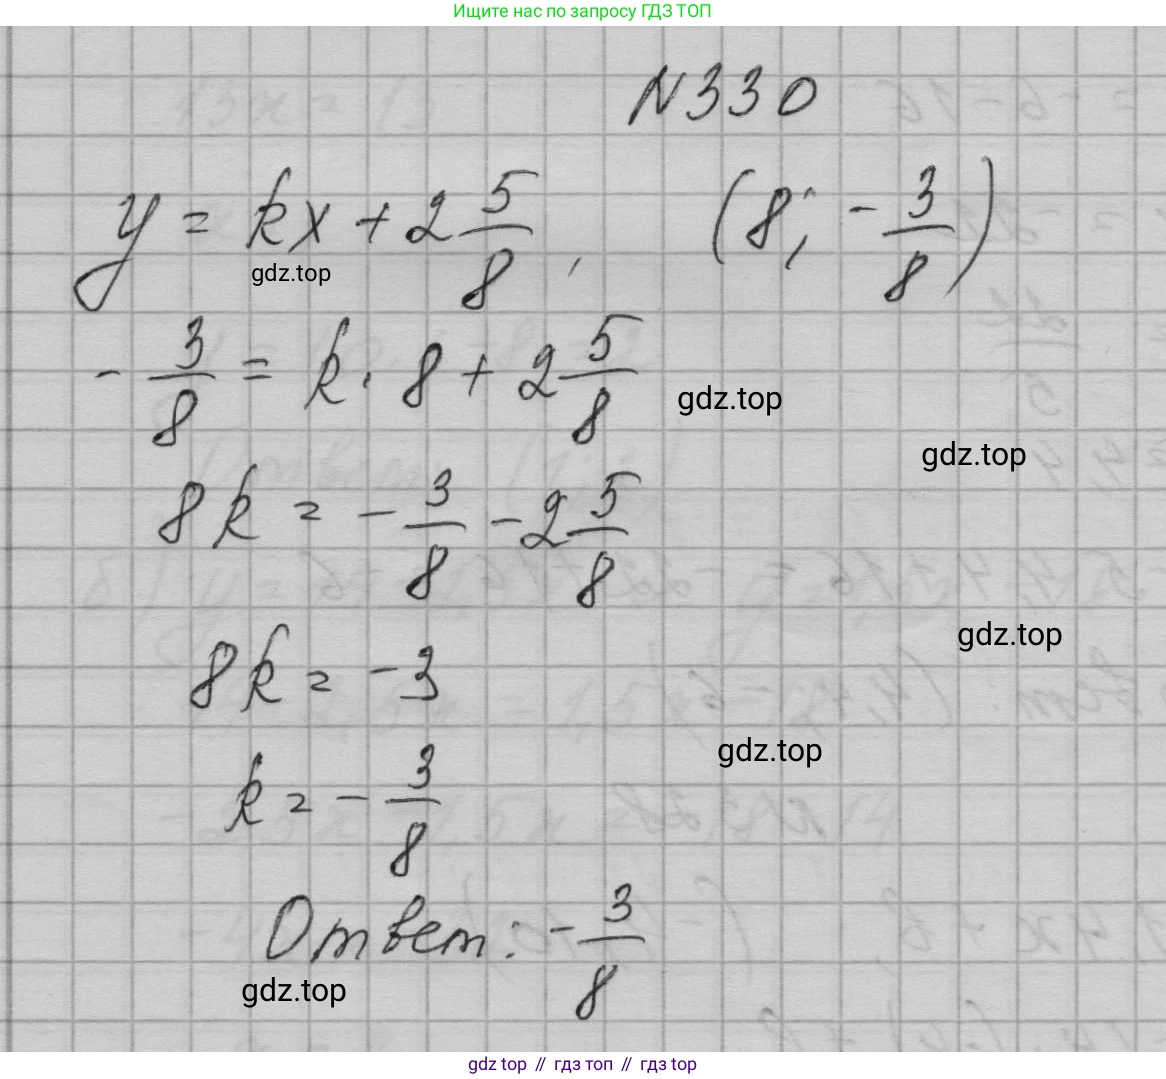 Ищите нас по запросу ГДЗ ТОП
N330
y = kx + 2 5/8, (8; -3/8)
gdz.top
-3/8 = k · 8 + 2 5/8
gdz.top
gdz.top
8k = -3/8 - 2 5/8
gdz.top
8k = -3
gdz.top
k = -3/8
Ответ: -3/8
gdz.top
gdz top // гдз топ // гдз top